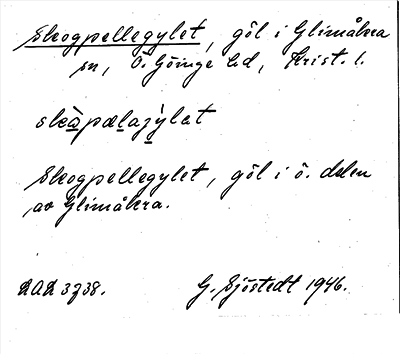 Skogpellegylet, göl i Glimåkra
sn, Ö. Göinge hd, Krist. l.
skàpælajýlæt
Skogpellegylet, göl i ö. delen
av Glimåkra.
G. Sjöstedt 1946.